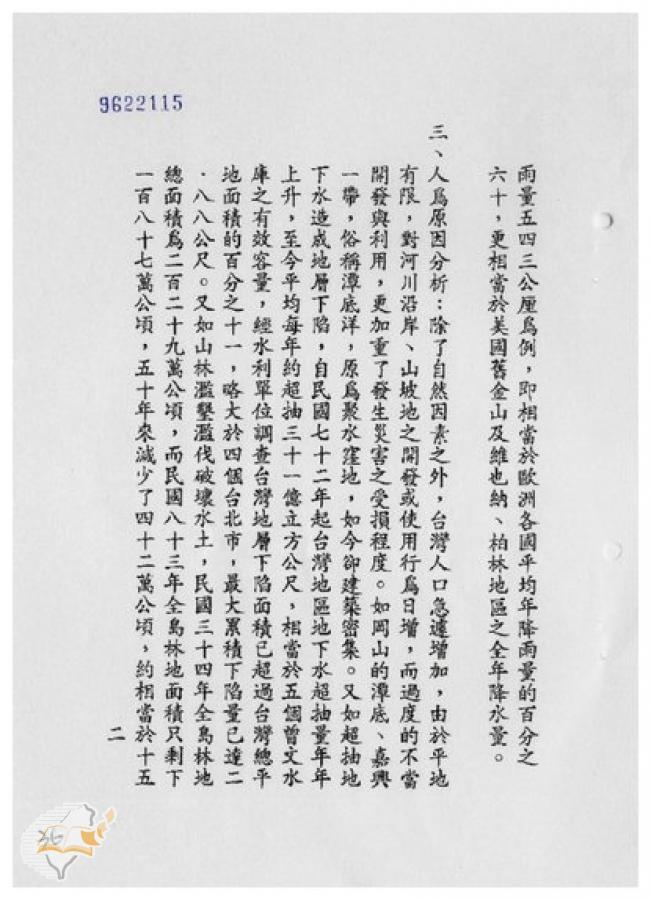 9622115
雨量五四三公厘為例，即相當於歐洲各國平均年降雨量的百分之
六十，更相當於美國舊金山及維也納、柏林地區之全年降水量。
三、人為原因分析：除了自然因素之外，台灣人口急遽增加，由於平地
有限，對河川沿岸、山坡地之開發或使用行為日增，而過度的不當
開發與利用，更加重了發生災害之受損程度。如岡山的潭底、嘉興
一帶，俗稱潭底洋，原為聚水窪地，如今卻建築密集。又如超抽地
下水造成地層下陷，自民國七十二年起台灣地區地下水超抽量年年
上升，至今平均每年約超抽三十一億立方公尺，相當於五個曾文水
庫之有效容量，經水利單位調查台灣地層下陷面積已超過台灣總平
地面積的百分之十一，略大於四個台北市，最大累積下陷量已達二
．八八公尺。又如山林濫墾濫伐破壞水土，民國三十四年全島林地
總面積為二百二十九萬公頃，而民國八十三年全島林地面積只剩下
一百八十七萬公頃，五十年來減少了四十二萬公頃，約相當於十五
二
36